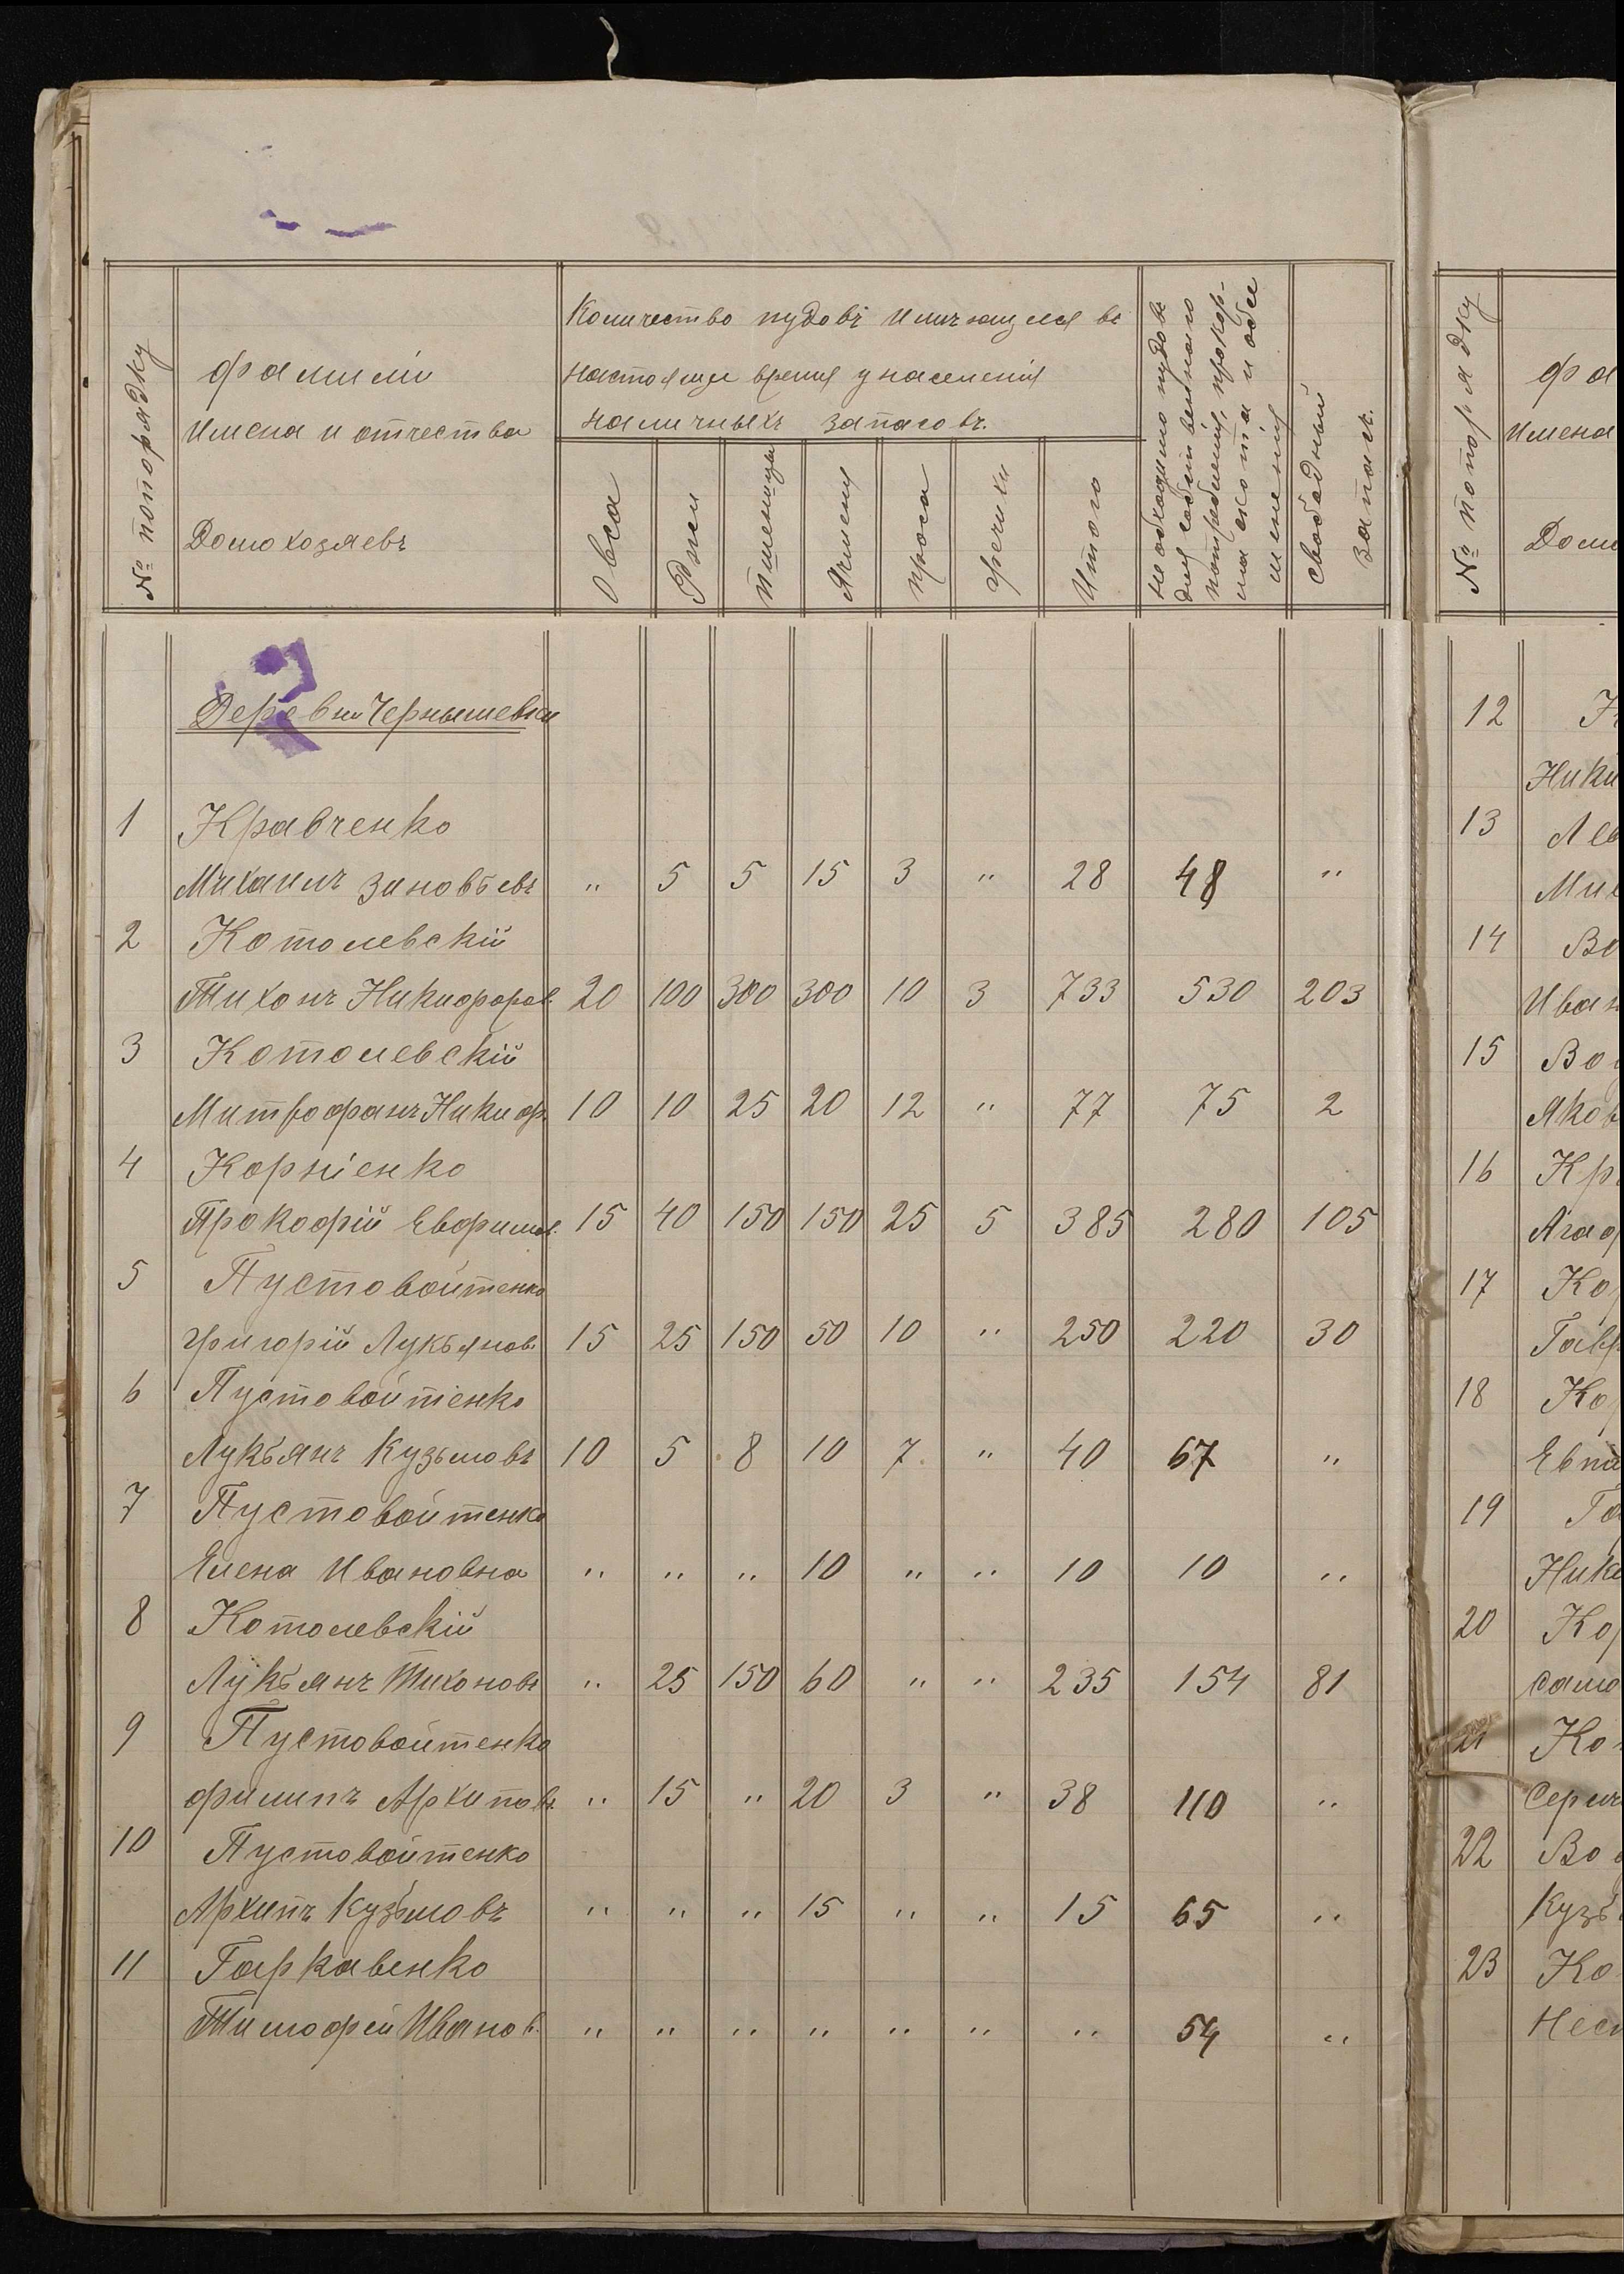 № по порядку
фамиліи
имена и отчества
Домохозяевъ
Количество пудовъ имѣющуеся въ
настоящее время у населенія
наличныхъ запасовъ.
Овса
Ржи
пшеницы
Ячменя
проса
гречихи
Итого
необходимо пудовъ
для собственнаго
потребленія, прокор-
ма скота и обсе
мененія
свободный
запасъ.
Деревни Чернышевки
1 Кравченко
Михаилъ Зиновьевъ " 5 5 15 3 " 28 48 "
2 Котолевскій
Тихонъ Никифоров. 20 100 300 300 10 3 733 530 203
3 Котолевскій
Митрофанъ Никиф. 10 10 25 20 12 " 77 75 2
4 Корніенко
Прокофій Ефимов. 15 40 150 150 25 5 385 280 105
5 Пустовойтенко
Григорій Лукьянов. 15 25 150 50 10 " 250 220 30
6 Пустовойтенко
Лукьянъ Кузьмовъ 10 5 8 10 7 " 40 67 "
7 Пустовойтенко
Елена Ивановна " " " 10 " " 10 10 "
8 Котолевскій
Лукьянъ Тихоновъ " 25 150 60 " " 235 154 81
9 Пустовойтенко
филипъ Архиповъ. " 15 " 20 3 " 38 110 "
10 Пустовойтенко
Архипъ Кузьмовъ " " " 15 " " 15 65 "
11 Гаркавенко
Тимофей Иванов. " " " " " " " 54 "
№ по порядку
фа
имена
Домо
12
Ники
13 Лев
Мих
14 Во
Иван
15 Во
Яков
16 Кр
Агаф
17 Ко
Гавр
18 Ко
19
Ники
20 Ко
само
21 Ко
22 Во
Кузь
23 Ко